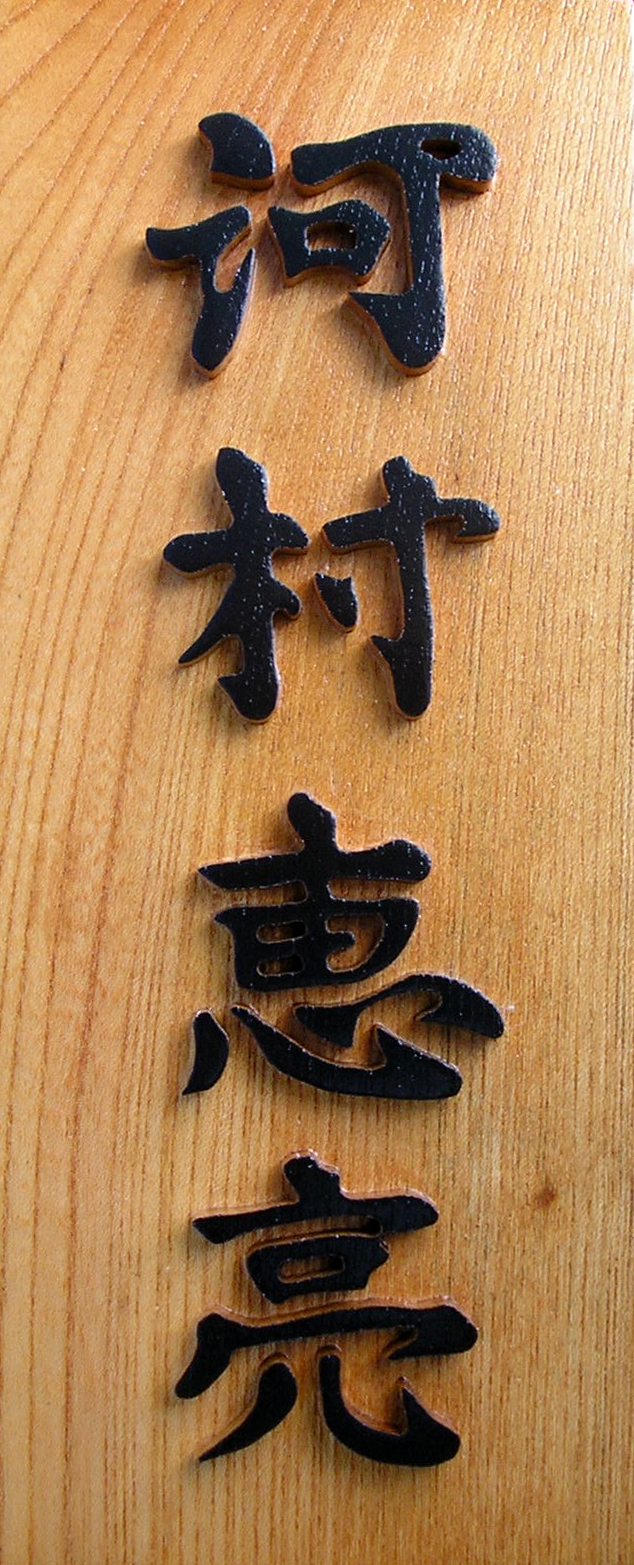 河村恵亮